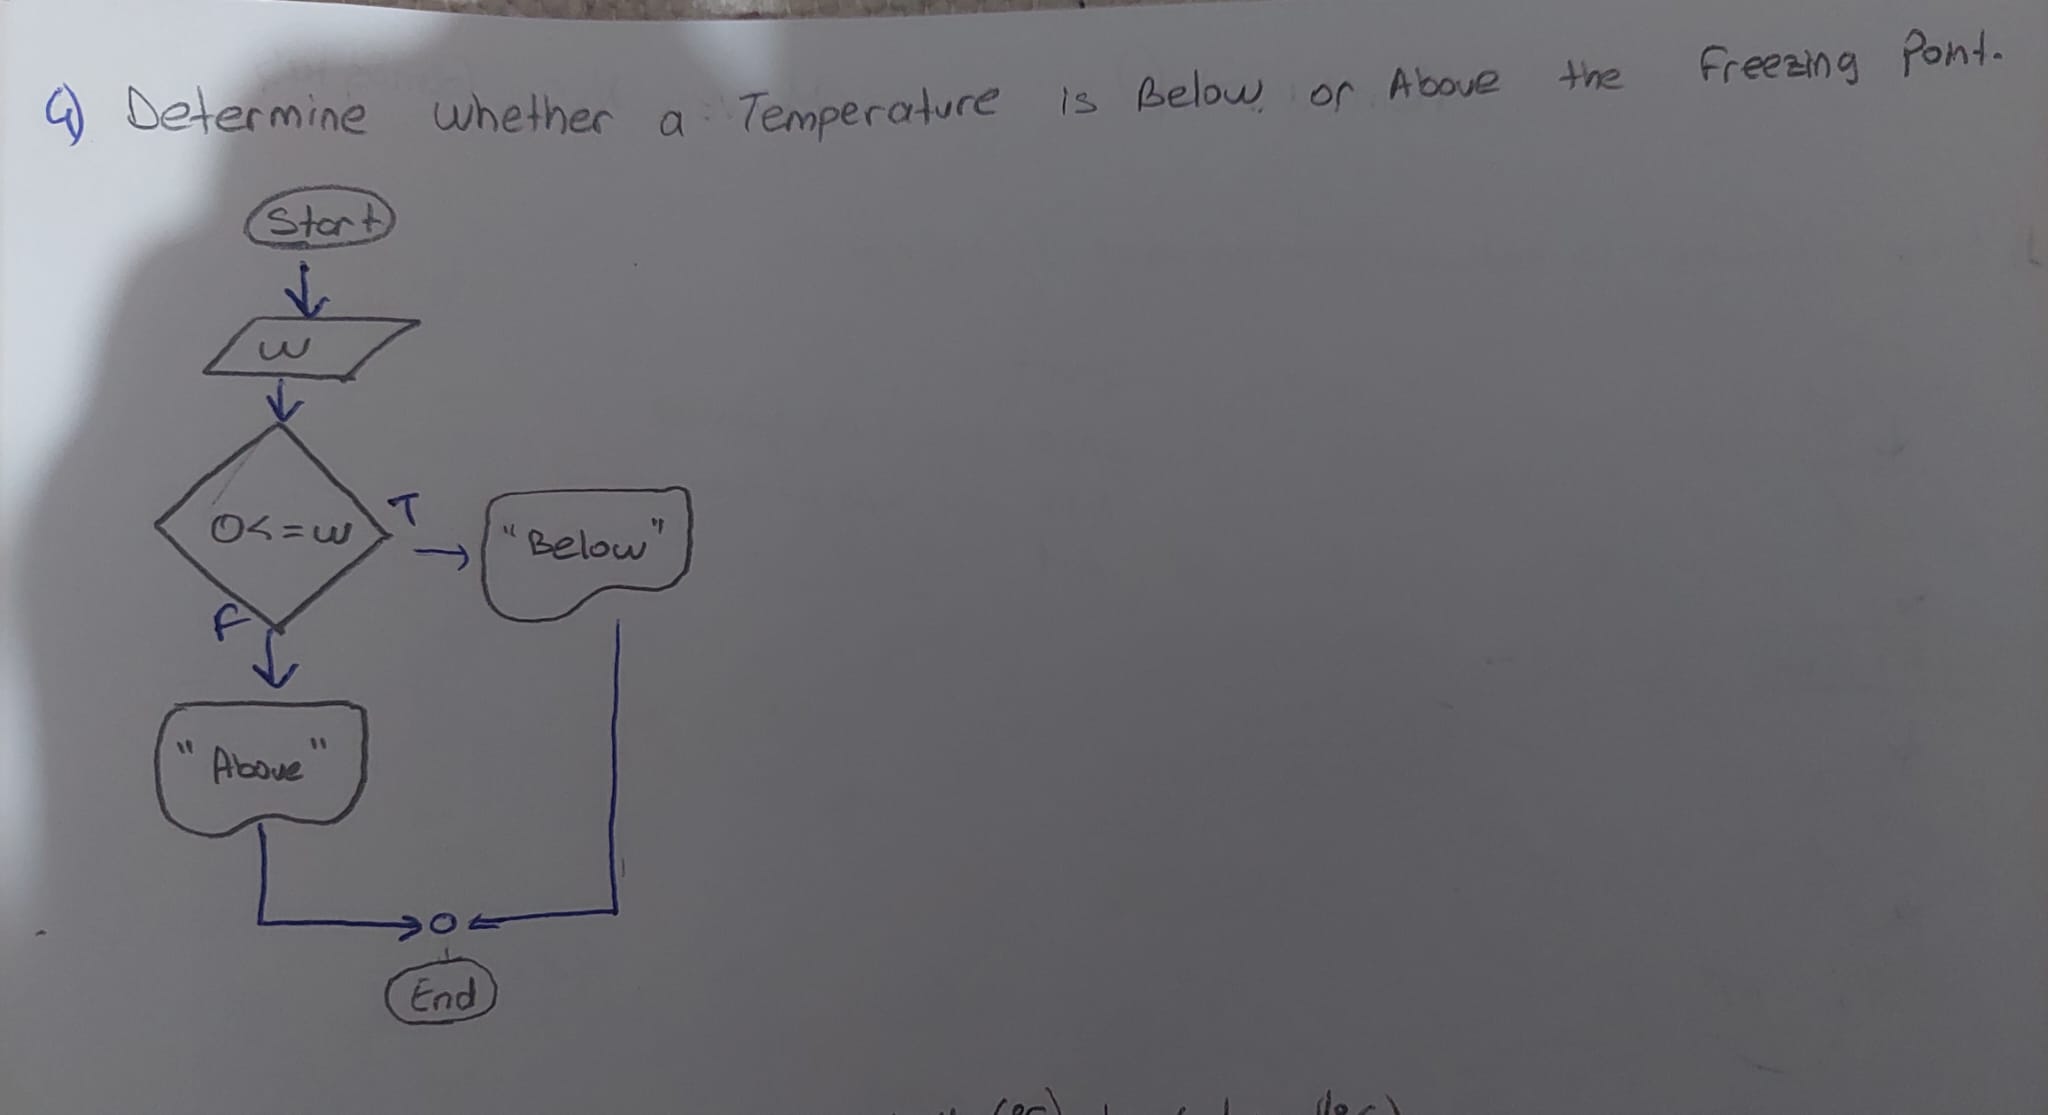 4) Determine whether a Temperature is Below or Above the Freezing Point.
Start
w
0<=w
T
"Below"
F
"Above"
End